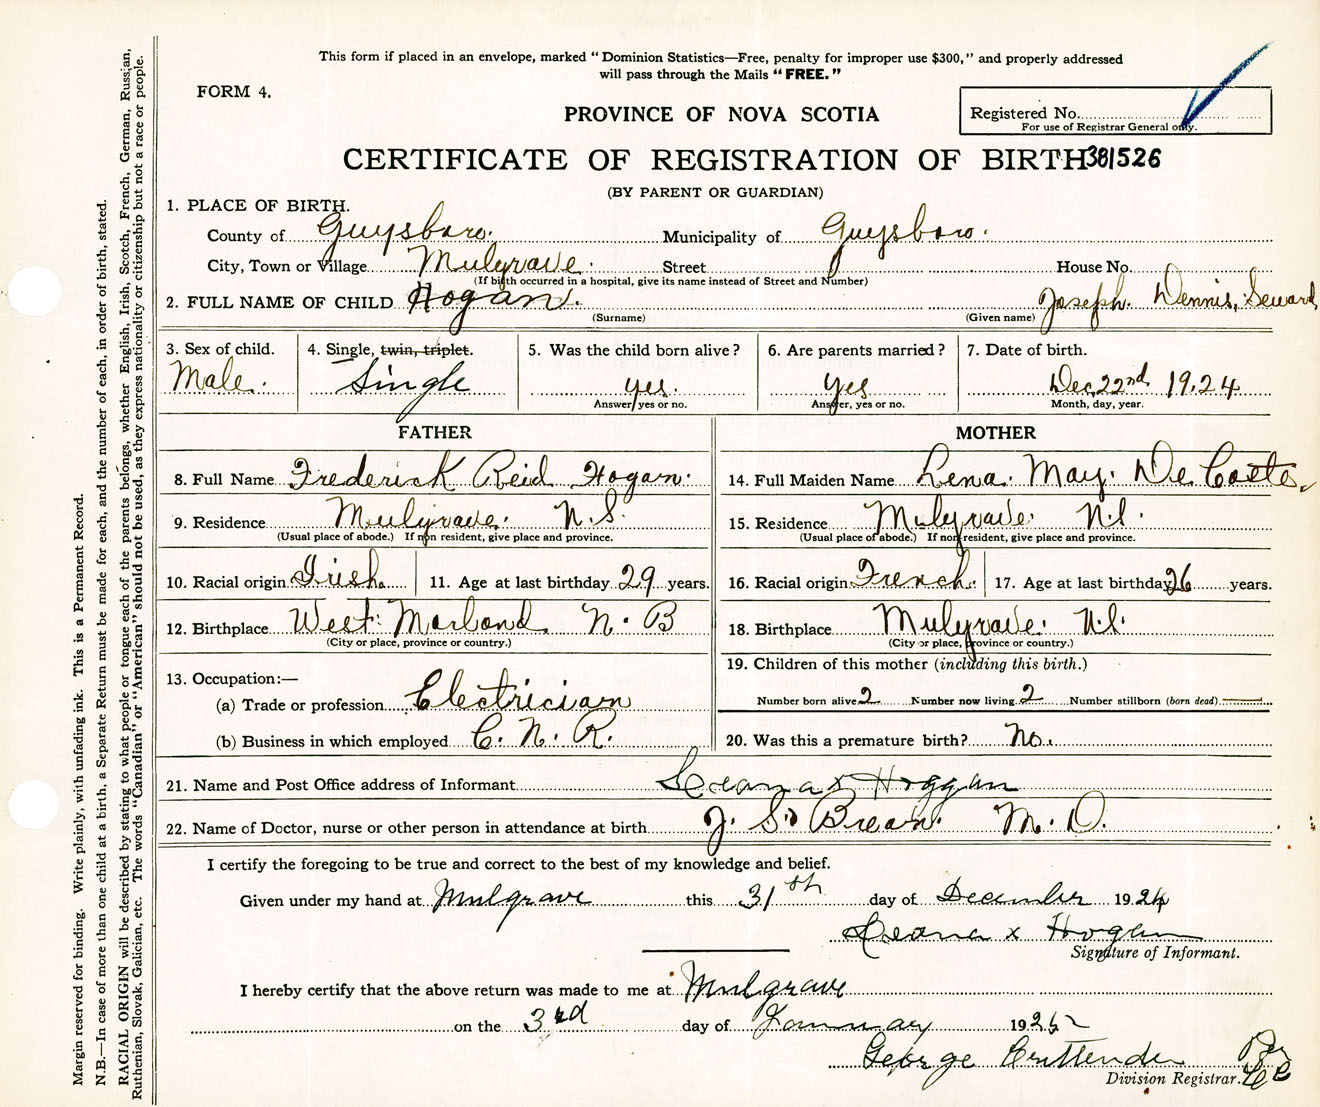 This form if placed in an envelope, marked "Dominion Statistics—Free, penalty for improper use $300," and properly addressed
will pass through the Mails "FREE."
FORM 4.
PROVINCE OF NOVA SCOTIA
Registered No.
For use of Registrar General only.
CERTIFICATE OF REGISTRATION OF BIRTH 381526
(BY PARENT OR GUARDIAN)
1. PLACE OF BIRTH.
County of Guysboro. Municipality of Guysboro.
City, Town or Village Mulgrave. Street House No.
(If birth occurred in a hospital, give its name instead of Street and Number)
2. FULL NAME OF CHILD Hogan. Joseph. Dennis, Seward
(Surname) (Given name)
3. Sex of child. 4. Single, twin, triplet. 5. Was the child born alive? 6. Are parents married? 7. Date of birth.
Male. Single yes. Yes Dec, 22nd 1924
Answer, yes or no. Answer, yes or no. Month, day, year.
FATHER MOTHER
8. Full Name Frederick Reid Hogan. 14. Full Maiden Name Lena. May. De Coste.
9. Residence Mulgrave. N.S. 15. Residence Mulgrave. N.S.
(Usual place of abode.) If non resident, give place and province. (Usual place of abode.) If non resident, give place and province.
10. Racial origin Irish. 11. Age at last birthday 29 years. 16. Racial origin French. 17. Age at last birthday 26 years.
12. Birthplace West Morland N. B 18. Birthplace Mulgrave. N.S.
(City or place, province or country.) (City or place, province or country.)
13. Occupation:— 19. Children of this mother (including this birth.)
(a) Trade or profession Electrician Number born alive 2 Number now living 2 Number stillborn (born dead)
(b) Business in which employed C. N. R. 20. Was this a premature birth? No.
21. Name and Post Office address of Informant Leana x Hoggan
22. Name of Doctor, nurse or other person in attendance at birth J. S. Brean. M. D.
I certify the foregoing to be true and correct to the best of my knowledge and belief.
Given under my hand at Mulgrave this 31th day of December 1924
Leana x Hogan
Signature of Informant.
I hereby certify that the above return was made to me at Mulgrave
on the 3rd day of January 1925
George Cruttenden Per
Division Registrar.
Margin reserved for binding. Write plainly, with unfading ink. This is a Permanent Record.
N.B.—In case of more than one child at a birth, a Separate Return must be made for each, and the number of each, in order of birth, stated.
RACIAL ORIGIN will be described by stating to what people or tongue each of the parents belongs, whether English, Irish, Scotch, French, German, Russian,
Ruthenian, Slovak, Galician, etc. The words "Canadian" or "American" should not be used, as they express nationality or citizenship but not a race or people.